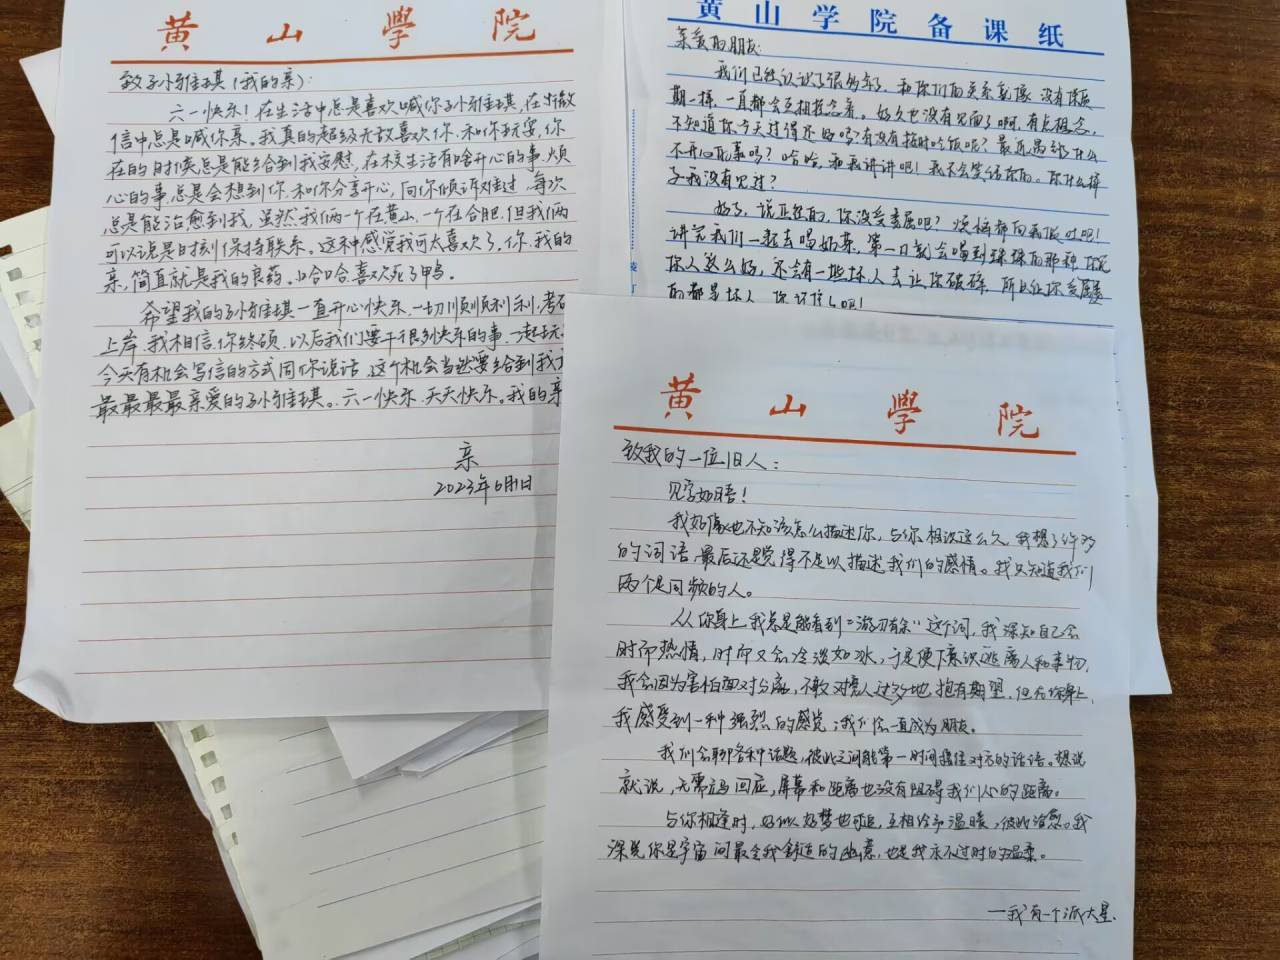 黄山學院
致孙雅琪(我的亲):
六一快乐!在生活中总是喜欢喊你孙雅琪,在微
信中总是喊你亲。我真的超级无敌喜欢你.和你玩耍,你
在的时候总是能给到我安慰,在校生活有啥开心的事.烦
心的事总是会想到你.和你分享开心,向你倾诉难过,每次
总是能治愈到我,虽然我们俩一个在黄山.一个在合肥.但我们俩
可以说是时刻保持联系。这种感觉我可太喜欢了,你.我的
亲,简直就是我的良药。哈哈.喜欢死了鸭。
希望我的孙雅琪一直开心快乐.一切顺顺利利,考研
上岸.我相信你终硕.以后我们要干很多快乐的事.一起玩
今天有机会写信的方式同你说话.这个机会当然要给到我
最最最最亲爱的孙雅琪。六一快乐.天天快乐。我的亲
亲
2023年6月1日
黄山学院备课纸
亲爱的朋友:
我们已经认识了很多年了,和你们的关系就像没有保质
期一样,一直都会互相挂念着。好久也没有见面了啊,有点想念,
不知道你今天过得还好吗?有没有按时吃饭呢?最近遇到了什么
不开心的事吗?哈哈,和我讲讲吧!我不会笑话你的。你什么样
子我没有见过?
好了,说正经的,你没受委屈吧?烦恼都向我倾吐吧!
讲完我们一起去喝奶茶,第一口就会喝到珠珠的那种.你说
你人这么好,还会有一些坏人去让你破碎,所以让你受委屈
的都是坏人.你记住了吧!
黄山學院
致我的一位旧人:
见字如晤!
我好像也不知该怎么描述你,与你相识这么久,我想了许多
的词语,最后还是觉得不足以描述我们的感情。我只知道我们
两个是同频的人。
从你身上我总是能看到“游刃有余”这个词,我深知自己会
时而热情,时而又会冷淡如冰,于是便下意识逃离人和事物,
我会因为害怕面对分离,不敢对旁人过多地抱有期望,但在你身上,
我感受到一种强烈的感觉;我们会一直成为朋友。
我们会聊各种话题,彼此之间能第一时间接住对方的话语。想说
就说,无需迟疑回应,屏幕和距离也没有阻碍我们心的距离。
与你相逢时,好似好梦成真,互相给予温暖,彼此治愈。我
深觉你是宇宙间最令我舒适的幽意,也是我永不过时的温柔。
—我有一个派大星.